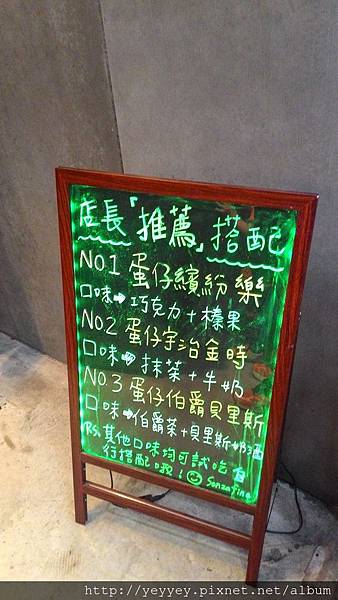 店長「推薦」搭配
NO1 蛋仔繽紛樂
口味➡巧克力+榛果
NO2 蛋仔宇治金時
口味➡抹茶+牛奶
NO.3 蛋仔伯爵貝里斯
口味➡伯爵茶+貝里斯奶酒
PS.其他口味均可試吃自
行搭配哦!☺
http://yeyyey.pixnet.net/album